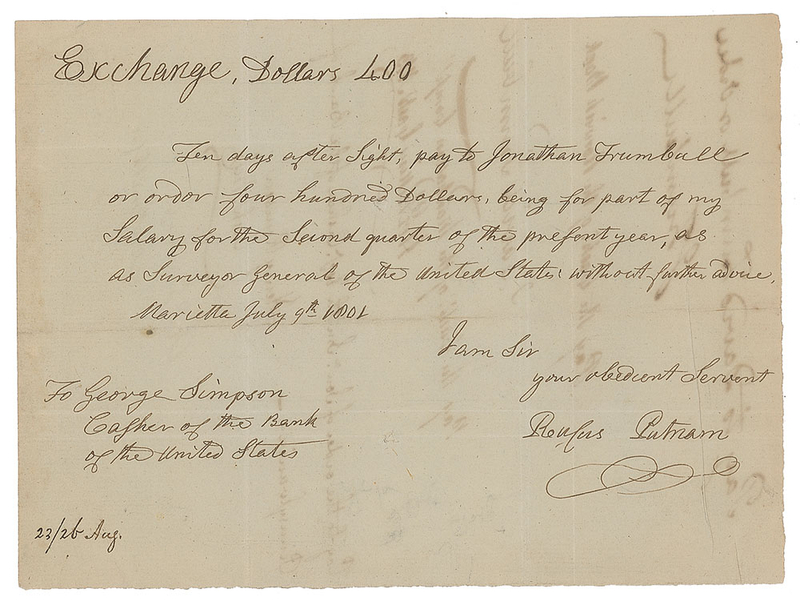 Exchange, Dollars 400
Ten days after Sight, pay to Jonathan Trumbull
or ordor four hundred Dollars, being for part of my
Salary for the Second quarter of the presont year, as
as Surveyor General of the United States, without further advice,
Marietta July 9th 1801
I am Sir
your obedient Servent
Rufus Putnam
To George Simpson
Casher of the Bank
of the United States
23/26 Aug.